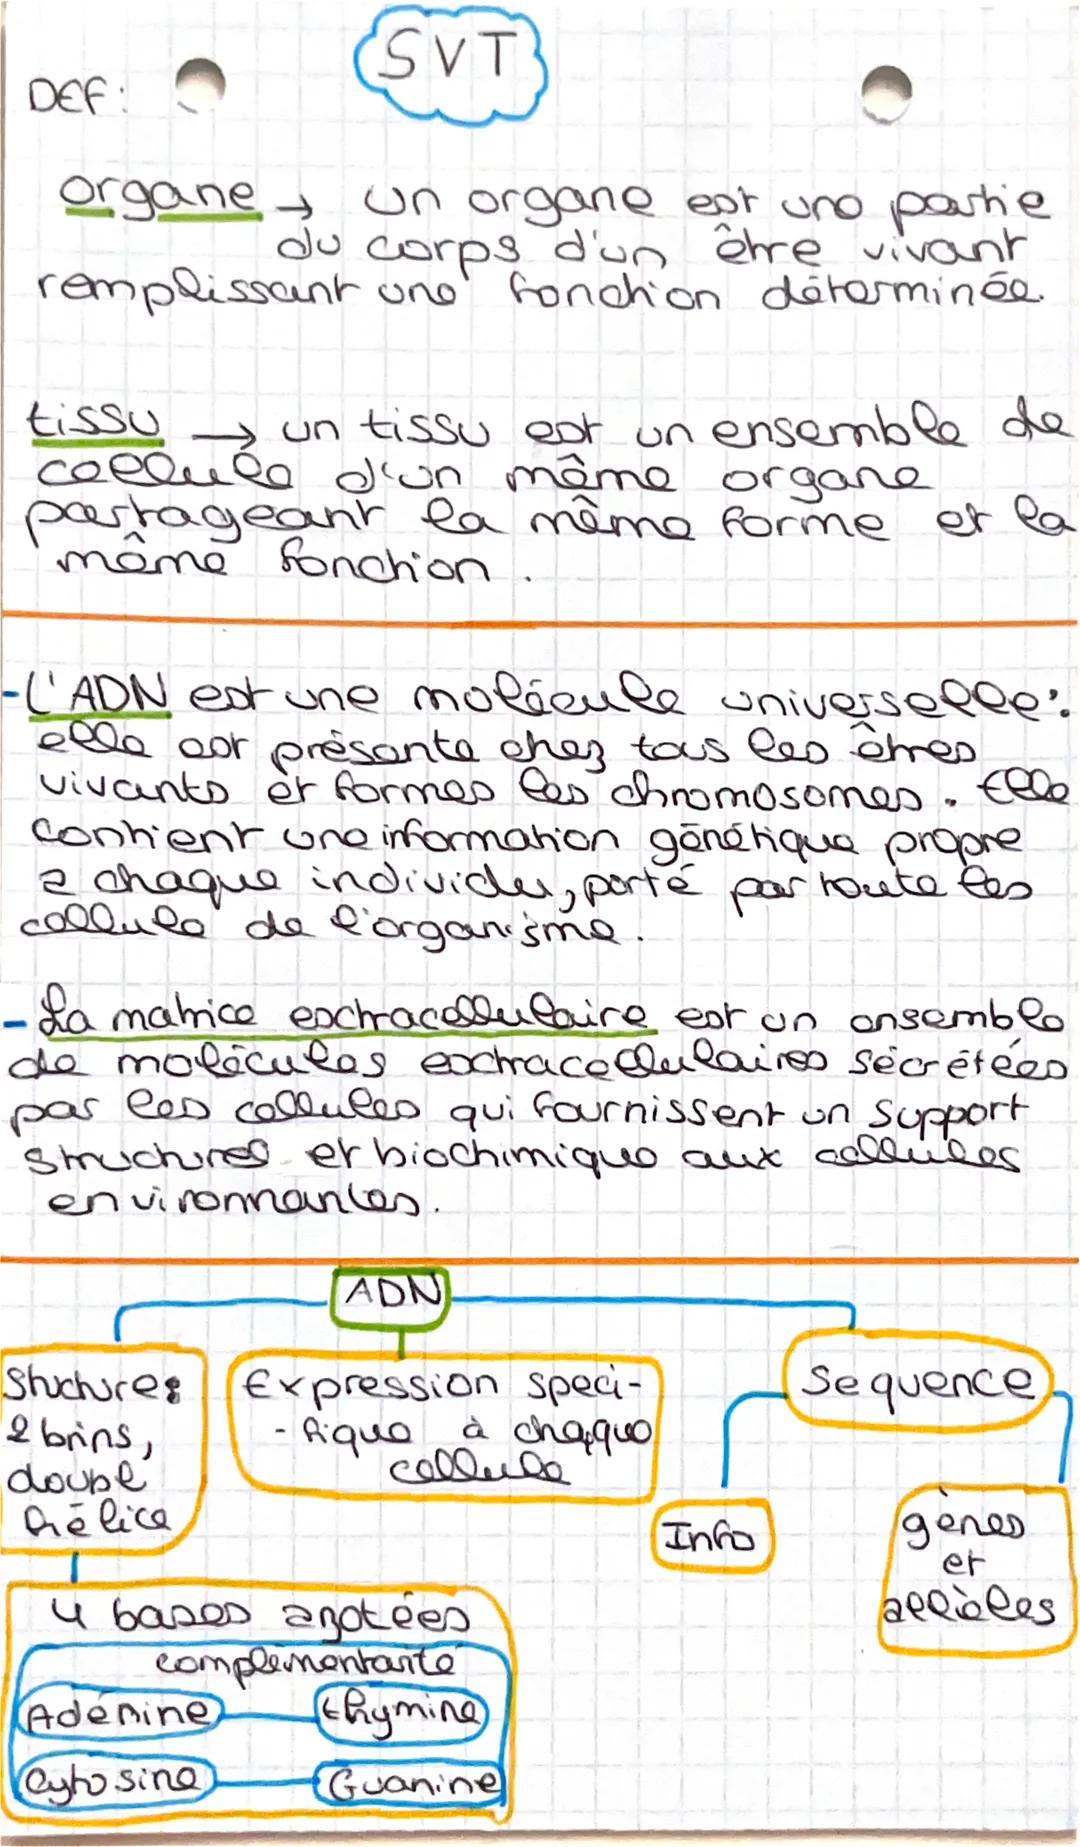 SVT
DEF:
organe → un organe est une partie
du corps d'un être vivant
remplissant une fonction déterminée.
tissu → un tissu est un ensemble de
cellule d'un même organe
partageant la même forme et la
même fonction.
- L'ADN est une molécule universelle:
elle est présente chez tous les êtres
vivants et formes les chromosomes. Elle
contient une information génétique propre
à chaque individu, porté par toute les
cellule de l'organisme.
- La matrice exctracellulaire est un ensemble
de molécules exctracellulaires sécrétées
par les cellules qui fournissent un support
structures et biochimique aux cellules
environnantes.
ADN
Structure:
2 brins,
double
hélice
Expression speci-
-fique à chaque
cellule
Sequence
Info
gènes
et
allèles
4 bases azotées
complémentarité
Adénine thymine
Cytosine Guanine